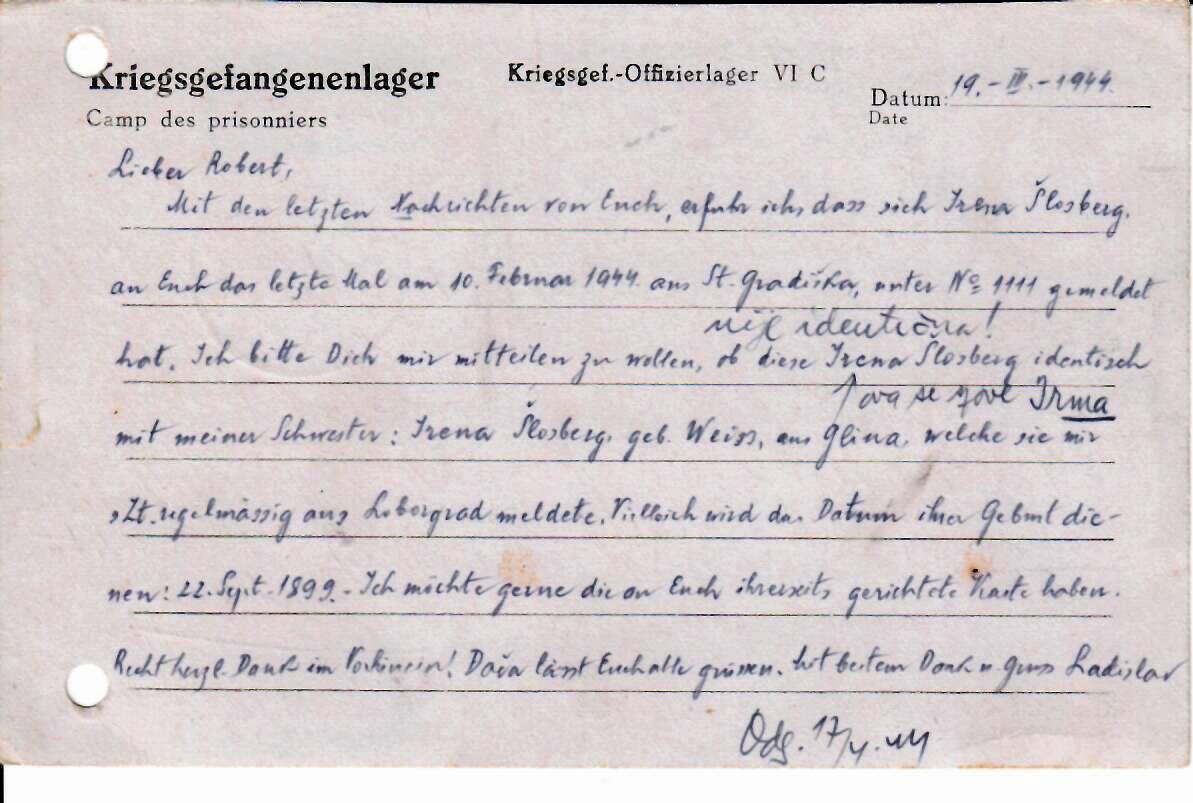 Kriegsgefangenenlager
Camp des prisonniers
Kriegsgef.-Offizierlager VI C
Datum: 19.-III.-1944.
Date
Lieber Robert,
Mit den letzten Nachrichten von Euch, erfuhr ich, dass sich Irena Šlosberg,
an Euch das letzte Mal am 10. Februar 1944. aus St. Gradiška, unter No 1111 gemeldet
nije identična!
hat. Ich bitte Dich mir mitteilen zu wollen, ob diese Irena Šlosberg identisch
ova se zove Irma
mit meiner Schwester: Irena Šlosberg, geb. Weiss, aus Glina, welche sie mir
s.Zt. regelmässig aus Loborgrad meldete. Vielleich wird das Datum ihrer Geburt die-
nen: 22. Sept. 1899.- Ich möchte gerne die an Euch ihrerseits gerichtete Karte haben.
Recht herzl. Dank im Vorhinein! Daša lässt Euch alle grüssen. Mit bestem Dank u. Gruss Ladislav
Odg. 17/V. 44